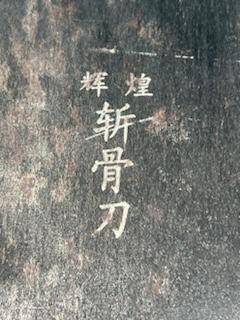 辉煌
斩骨刀